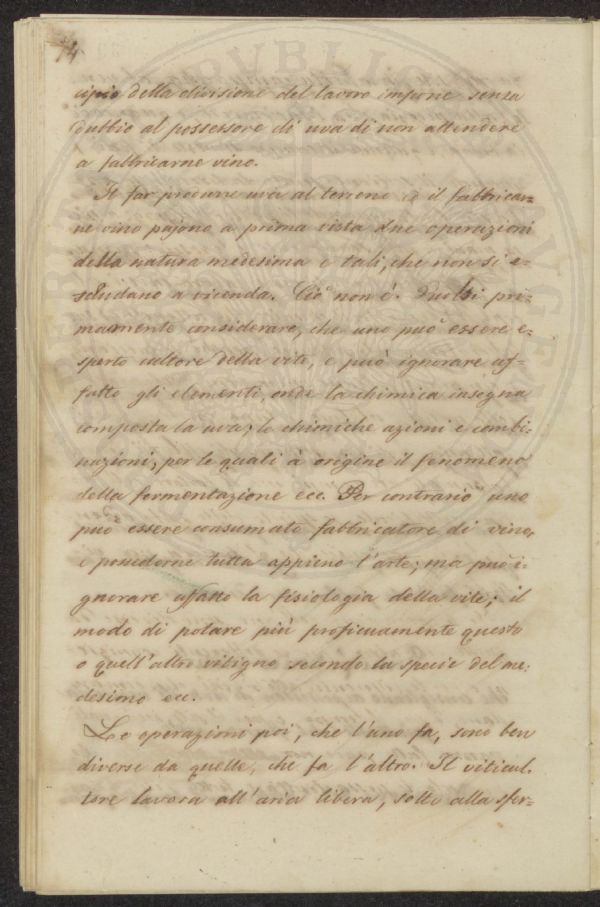 74
cipio della divisione del lavoro impone senza
dubbio al possessore di uva di non attendere
a fabbricarne vino.
Il far produrre uva al terreno ed il fabbricar=
ne vino pajono a prima vista due operazioni
della natura medesima e tali, che non si e=
scludano a vicenda. Ciò non è. Vuolsi pri=
mamente considerare, che uno può essere e=
sperto cultore della vite, e può ignorare af=
fatto gli elementi, onde la chimica insegna
composta la uva; le chimiche azioni e combi=
nazioni, per le quali à origine il fenomeno
della fermentazione ecc. Per contrario uno
può essere consumato fabbricatore di vino,
e possederne tutta appieno l'arte; ma può i=
gnorare affatto la fisiologia della vite; il
modo di potare più proficuamente questo
o quell'altro vitigno secondo la specie del me=
desimo ecc.
Le operazioni poi, che l'uno fa, sono ben
diverse da quelle, che fa l'altro. Il viticul=
tore lavora all'aria libera, sotto alla sfer=